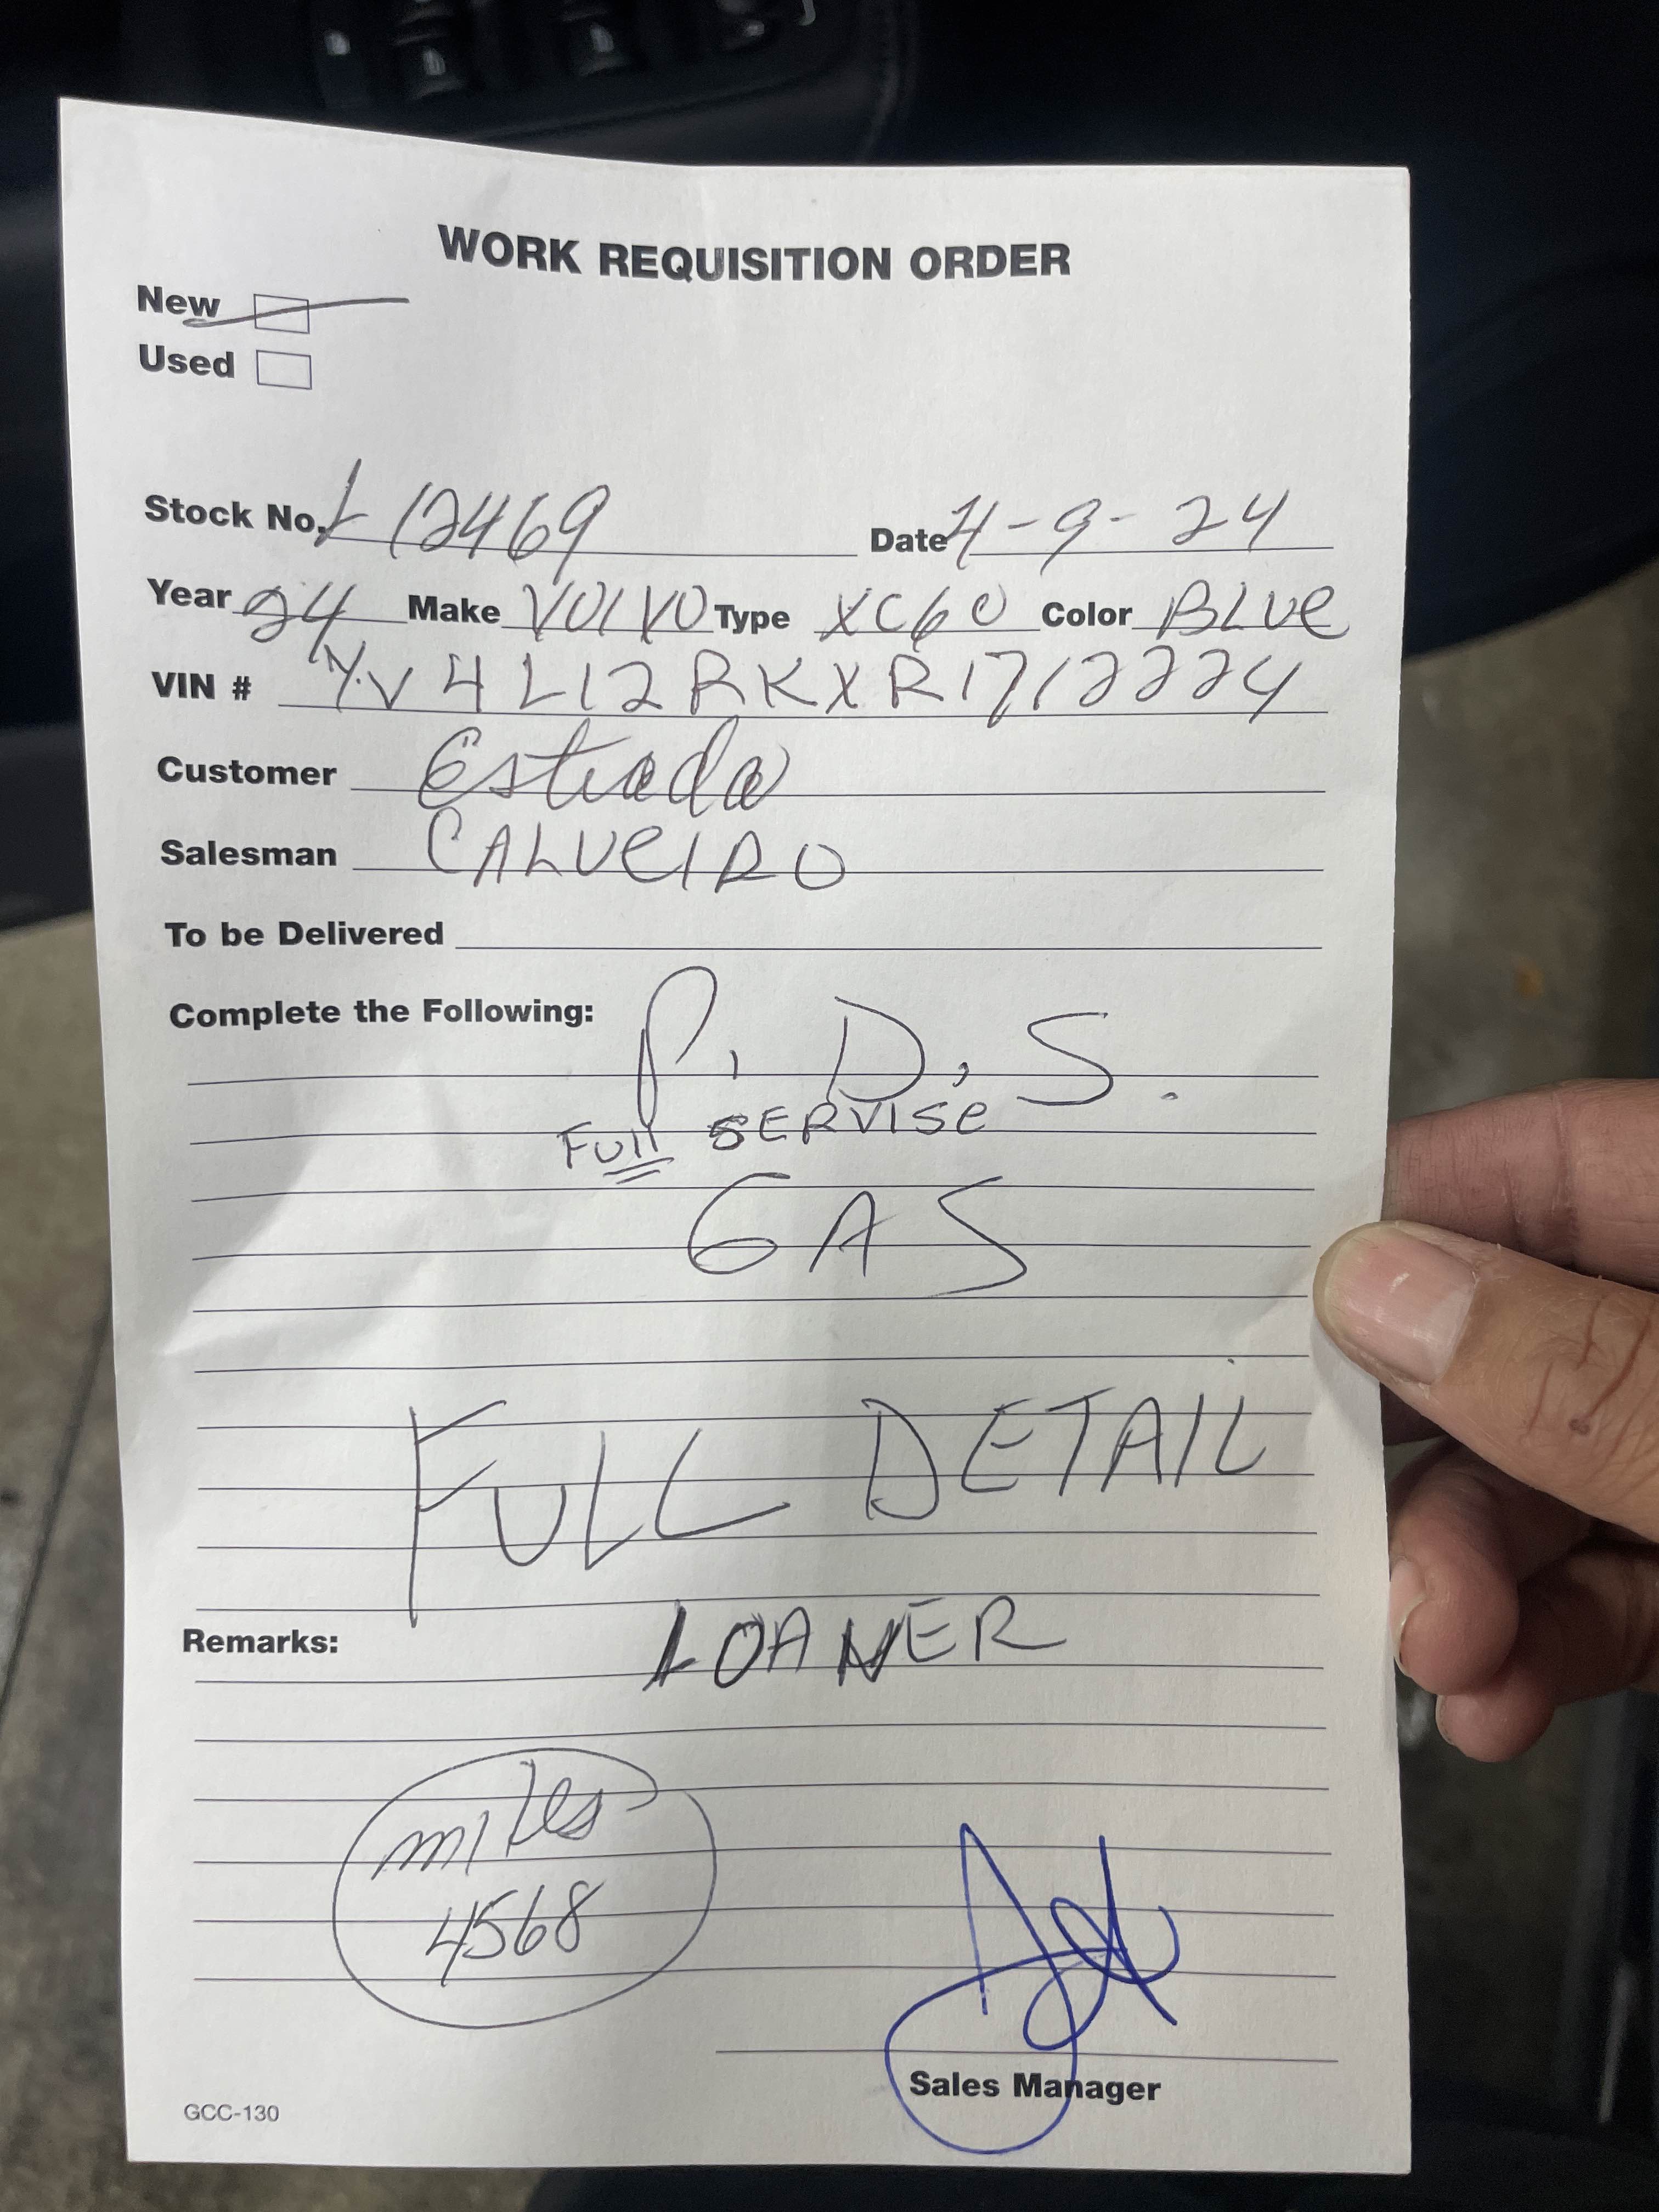 WORK REQUISITION ORDER
New
Used
Stock No. L 12469 Date 4-9-24
Year 24 Make VOLVO Type XC60 Color BLUe
VIN # YV4L12RKXR1712224
Customer Estrada
Salesman CALVeIRO
To be Delivered
Complete the Following: P. D. S.
Full SERVISe
GAS
FULL DETAIL
Remarks: LOANER
miles
4568
Sales Manager
GCC-130